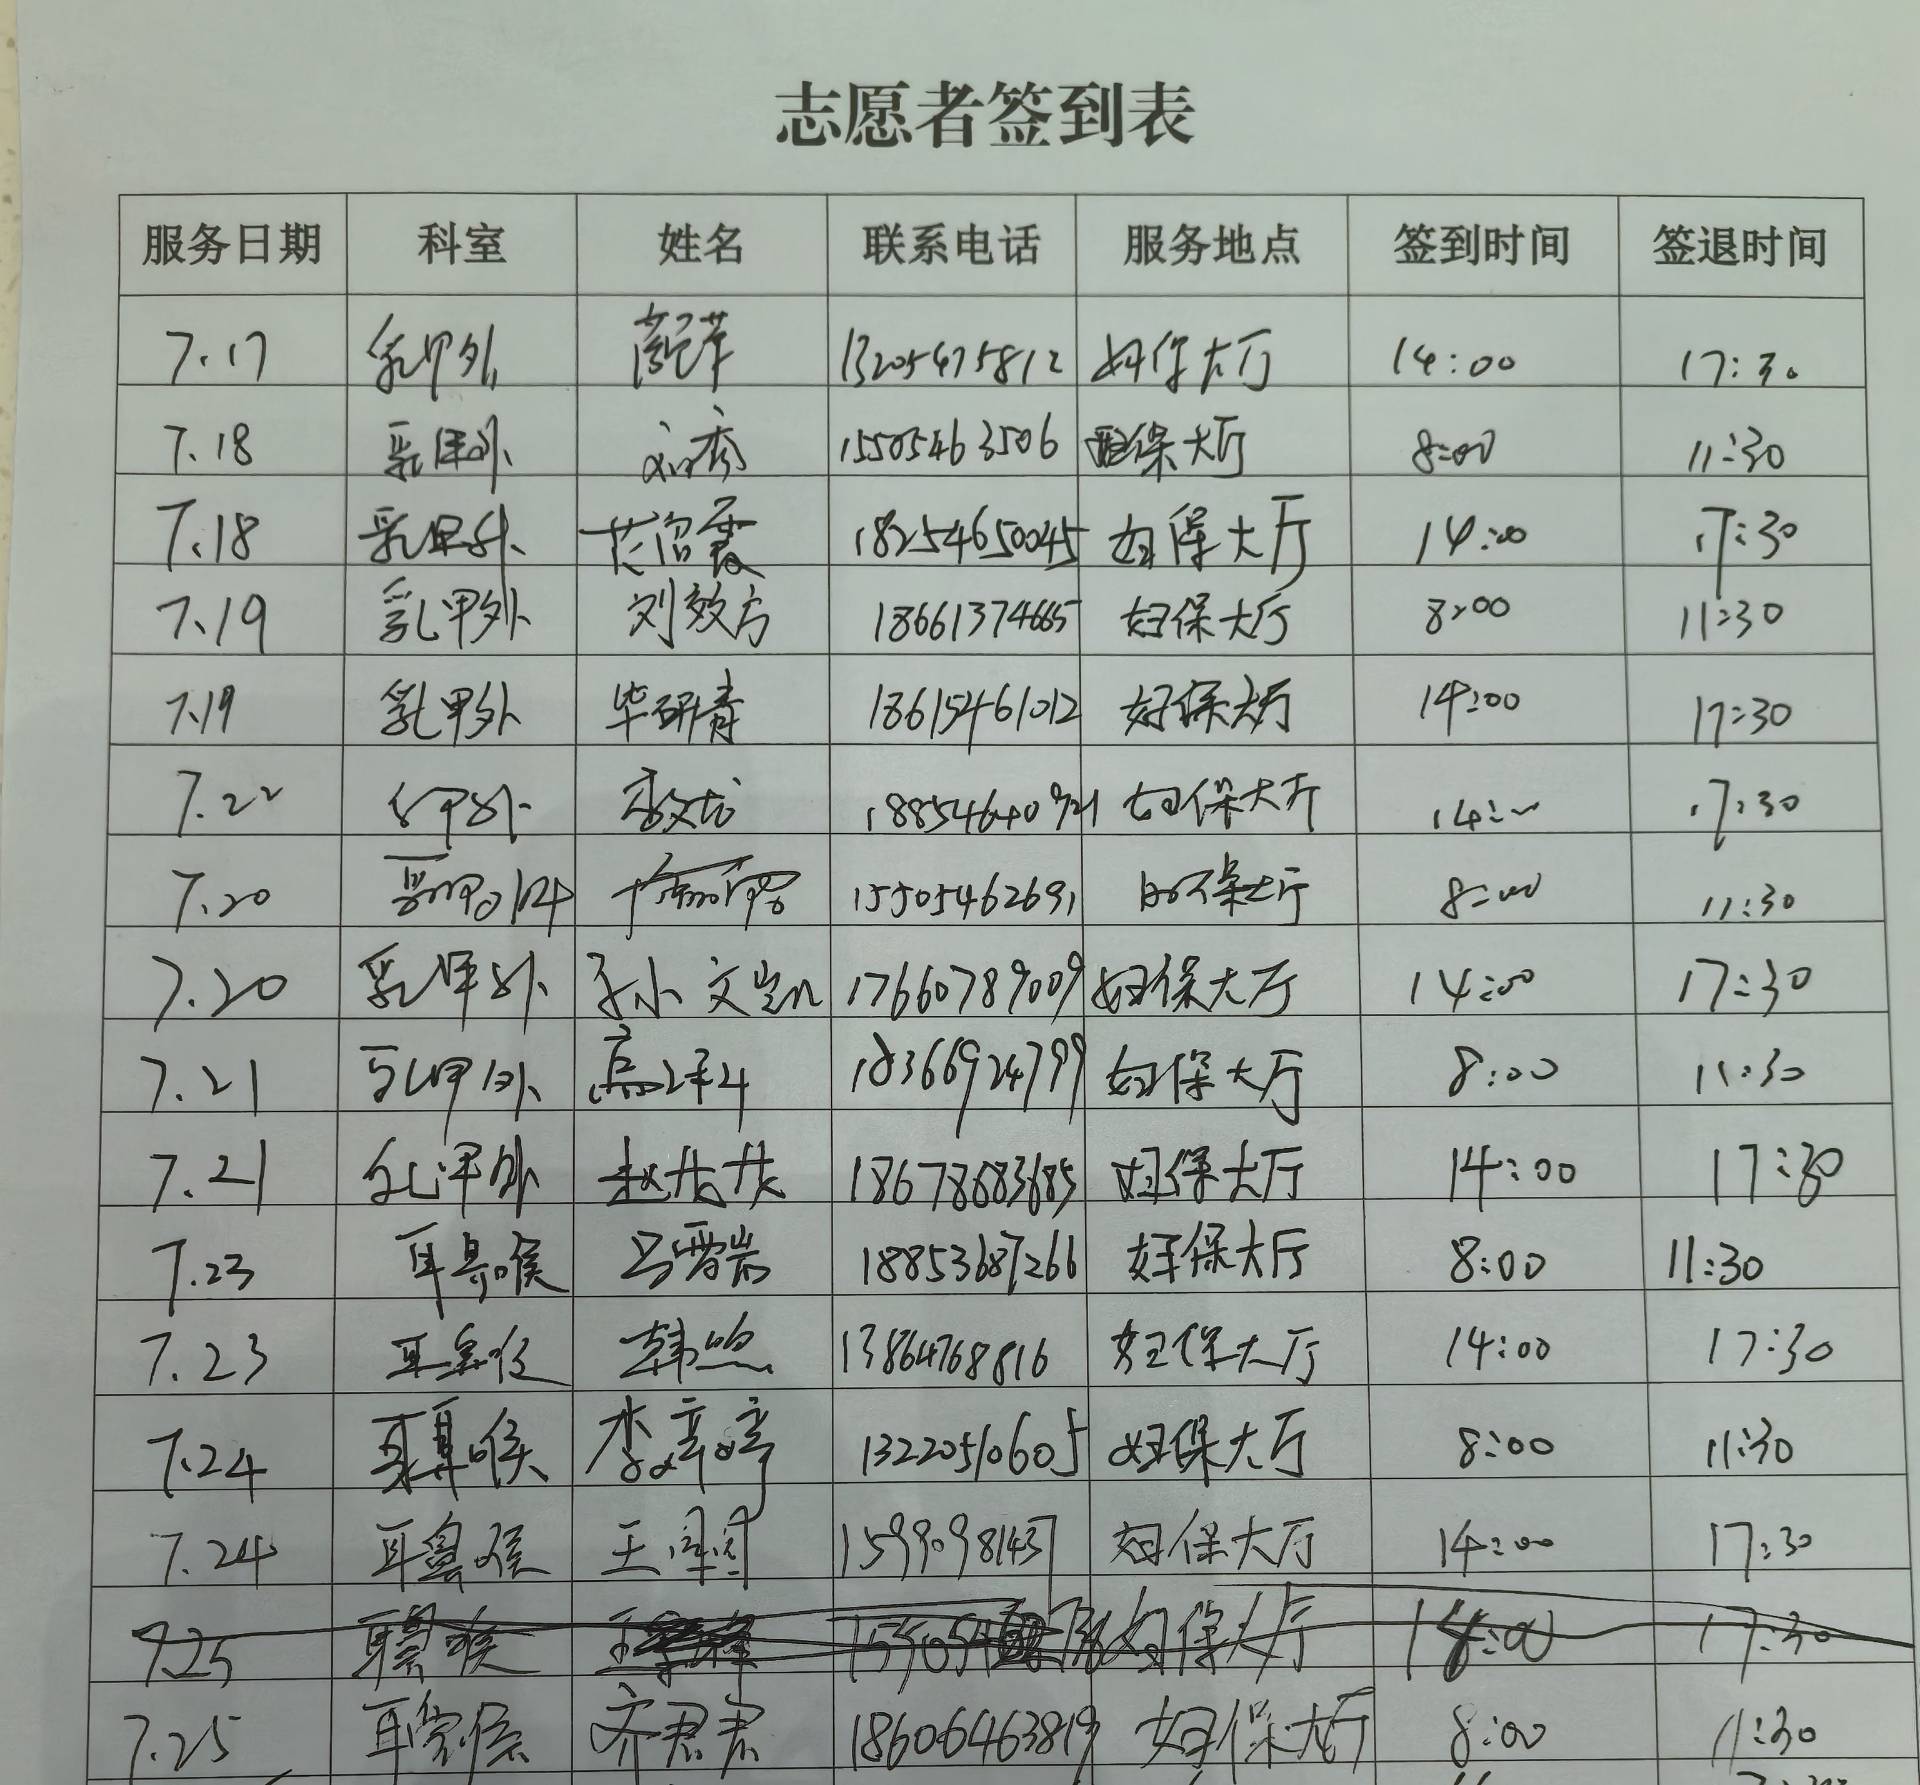 志愿者签到表
服务日期 科室 姓名 联系电话 服务地点 签到时间 签退时间
7.17 乳甲外 13205475812 妇保大厅 14:00 17:30
7.18 乳甲外 刘秀 15505463506 妇保大厅 8:00 11:30
7.18 乳甲外 范绍霞 18254650045 妇保大厅 14:00 17:30
7.19 乳甲外 刘效方 18661374665 妇保大厅 8:00 11:30
7.19 乳甲外 毕研青 18615461012 妇保大厅 14:00 17:30
7.22 乳甲外 18854640921 妇保大厅 14:00 17:30
7.20 乳甲外 15505462691 妇保大厅 8:00 11:30
7.20 乳甲外 孙文凯 17660789009 妇保大厅 14:00 17:30
7.21 乳甲外 18366924799 妇保大厅 8:00 11:30
7.21 乳甲外 赵茂茂 18678683685 妇保大厅 14:00 17:30
7.23 耳鼻喉 马雪岩 18853687266 妇保大厅 8:00 11:30
7.23 耳鼻喉 韩煦 13864768816 妇保大厅 14:00 17:30
7.24 耳鼻喉 李婷婷 13220510605 妇保大厅 8:00 11:30
7.24 耳鼻喉 王 15990981437 妇保大厅 14:00 17:30
7.25 耳鼻喉 妇保大厅 17:30
7.25 耳鼻喉 齐君君 18606463819 妇保大厅 8:00 11:30